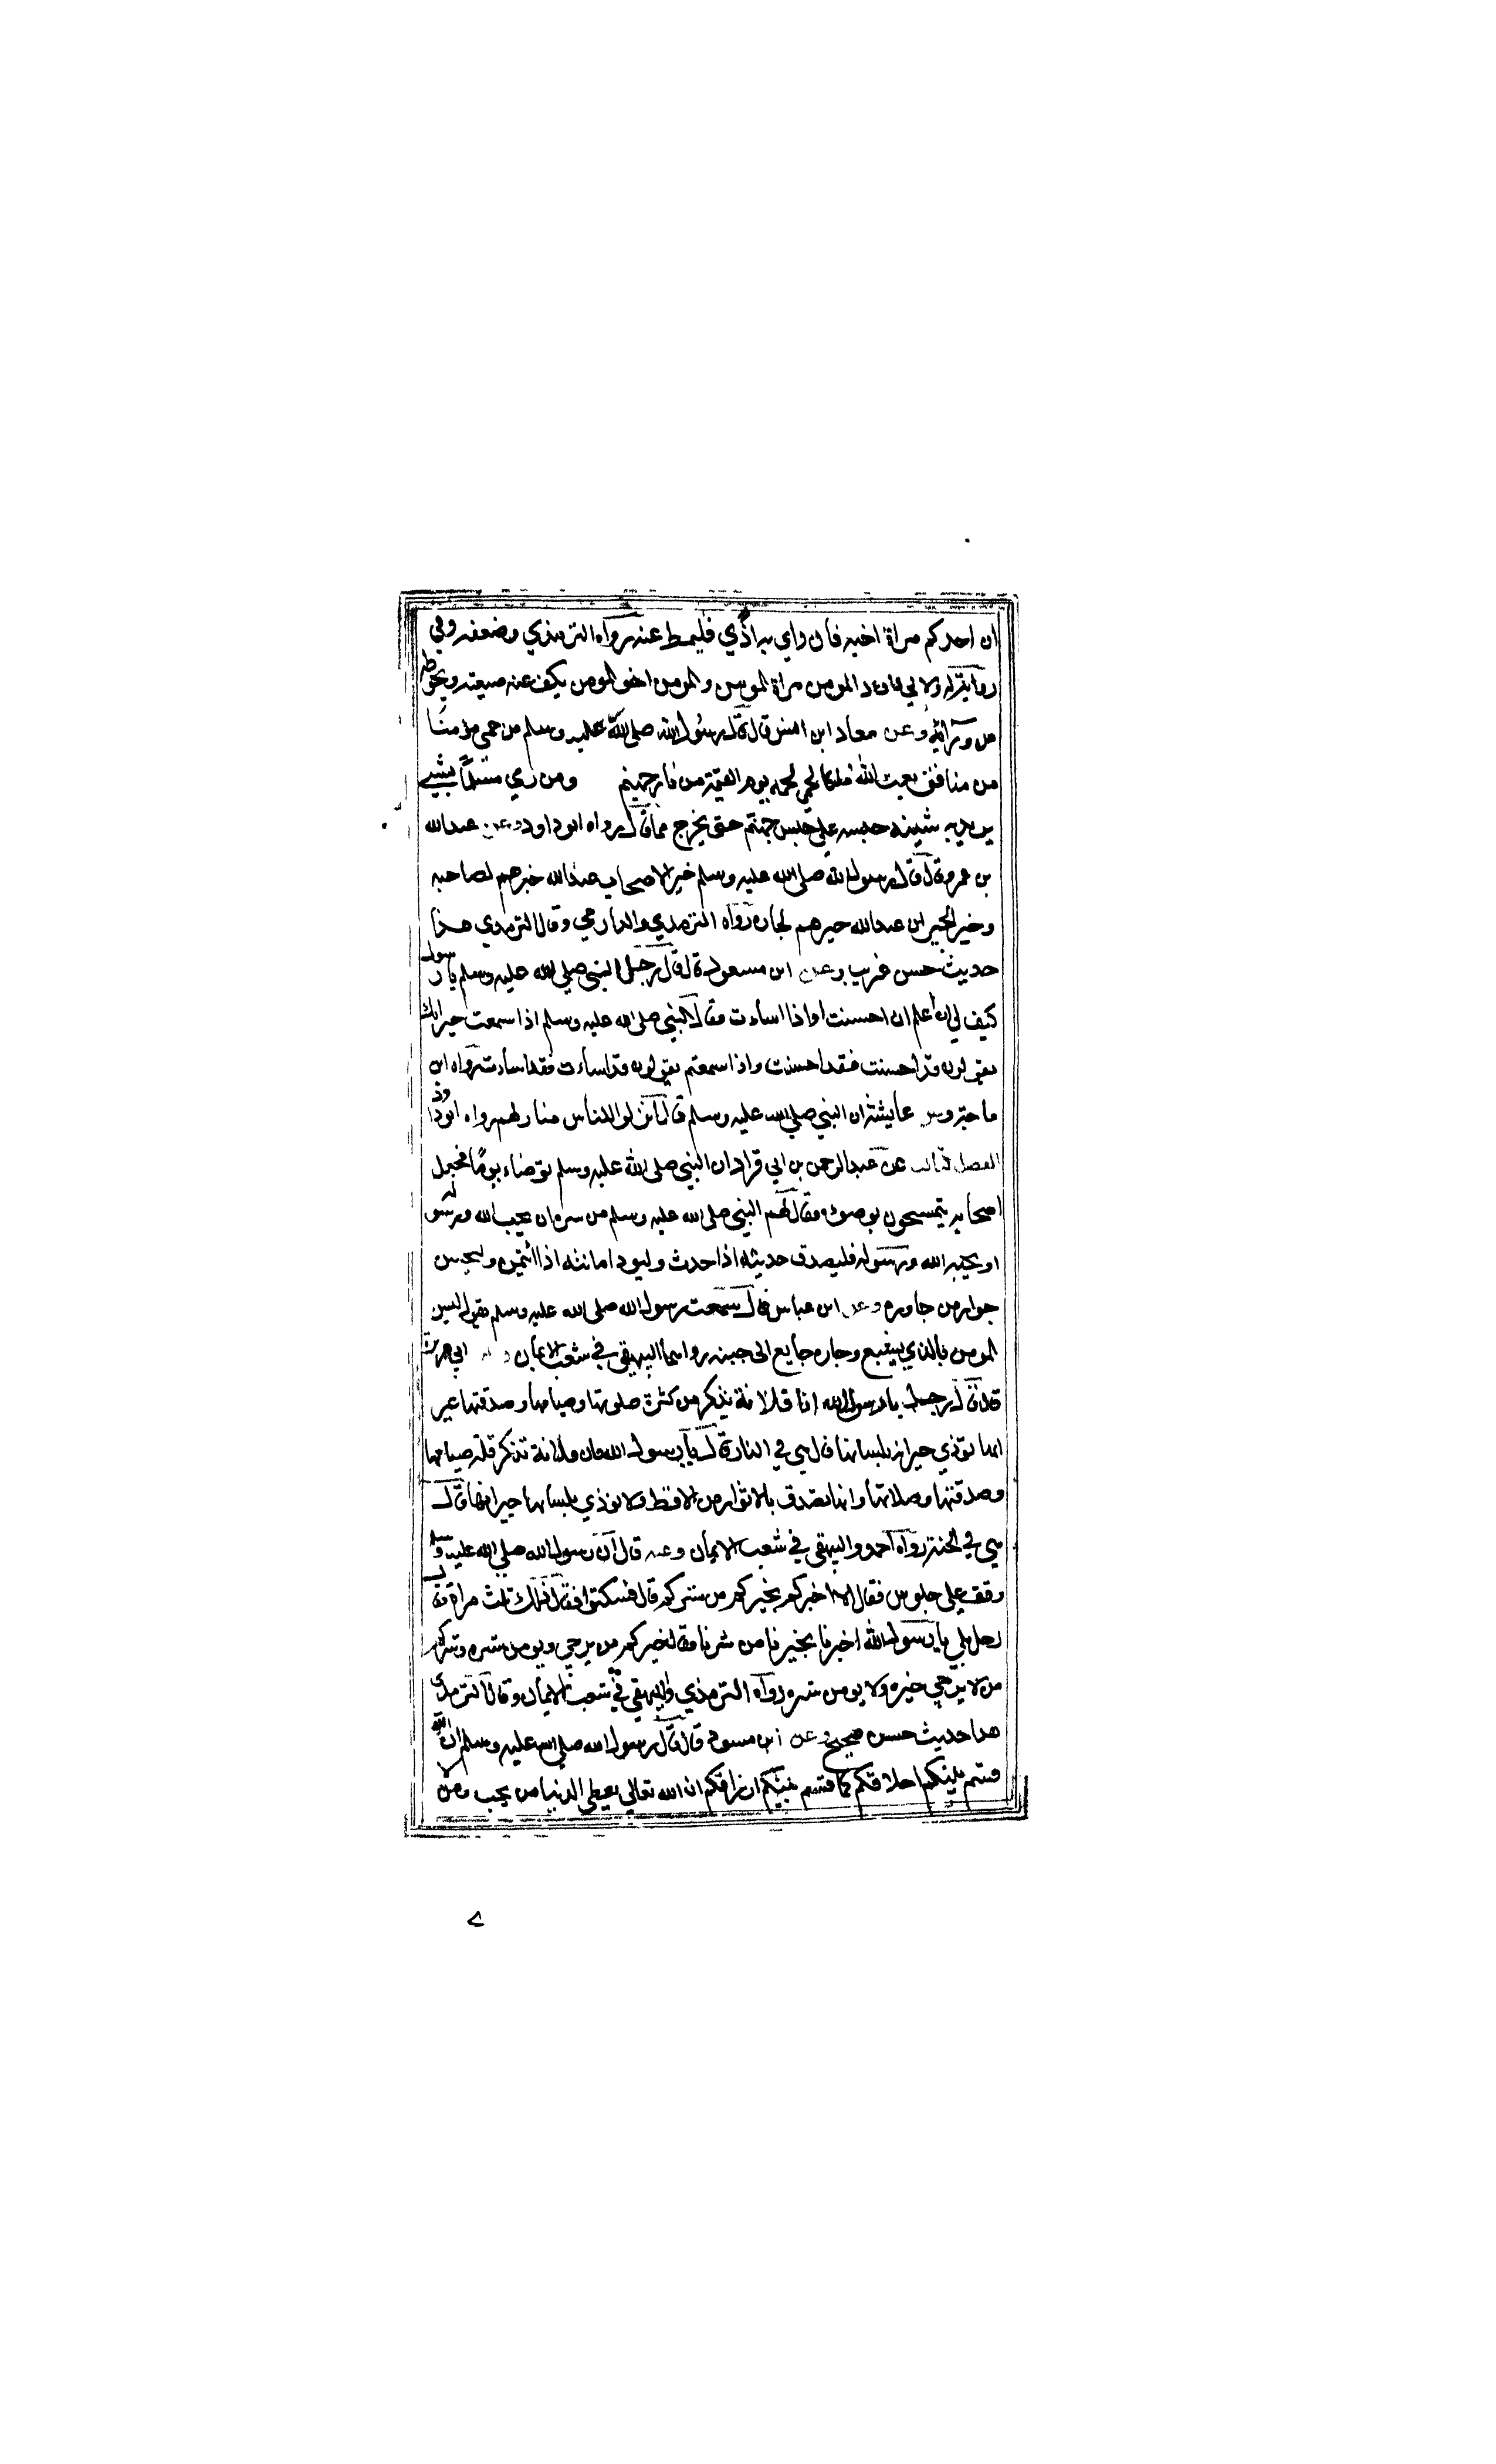 ان احدكم مراة اخيه فان راي به اذي فليمط عنه رواه الترمذي وضعفه وفي
رواية له ولابي داود المومن مراة المومن والمومن اخو المومن يكف عنه ضيعته ويحوطه
من ورائه وعن معاد ابن انس قال قال رسول الله صلي الله عليه وسلم من حمي مؤمنا
من منافق بعث الله ملكا يحمي لحمه يوم القيمة من نار جهنم ومن رمي مسلما بشيء
يريد به شينه حبسه علي جسر جهنم حتي يخرج مما قال رواه ابو داود وعن عبد الله
بن عمرو قال قال رسول الله صلي الله عليه وسلم خير الاصحاب عند الله خيرهم لصاحبه
وخير الجيران عند الله خيرهم لجاره رواه الترمذي والدارمي وقال الترمذي هذا
حديث حسن غريب وعن ابن مسعود قال قال رجل النبي صلي الله عليه وسلم يا رسول
كيف لي ان اعلم ان احسنت او اذا اساءت فقال النبي صلي الله عليه وسلم اذا سمعت جيرانك
يقولون قد احسنت فقد احسنت واذا سمعتم يقولون قد اساءت فقد اساءت رواه ابن
ماجة وعن عايشة ان النبي صلي الله عليه وسلم قال انزلوا الناس منازلهم رواه ابوداود
الفصل الثالث عن عبد الرحمن بن ابي قراد ان النبي صلي الله عليه وسلم توضاء يوما فجعل
اصحابه يتمسحون بوضوءه فقال لهم النبي صلي الله عليه وسلم من سره ان يحب الله ورسوله
او يحبه الله ورسوله فليصدق حديثه اذا حدث وليود امانته اذا ائتمن وليحسن
جوار من جاوره وعن ابن عباس قال سمعت رسول الله صلي الله عليه وسلم يقول ليس
المومن بالذي يشبع وجاره جايع الي جنبه رواهما البيهقي في شعب الايمان ابي هريرة
قال قال رجل يا رسول الله ان فلانة تذكر من كثرة صلوتها وصيامها وصدقتها غير
انها توذي جيرانه بلسانها قال هي في النار قال يا رسول الله فان فلانة تذكر قلة صيامها
وصدقتها وصلاتها وانها تصدق بالاثوار من الاقط ولا توذي بلسانها جيرانها قال
هي في الجنة رواه احمد والبيهقي في شعب الايمان وعنه قال ان رسول الله صلي الله عليه وسلم
وقف علي جلوس فقال الا اخبركم بخيركم من شركم قال فسكتوا فقال ذلك ثلث مراة فقال
رجل بلي يا رسول الله اخبرنا بخيرنا من شرنا فقال خيركم من يرجي ويومن شره وشركم
من لا يرجي خيره ولا يومن شره رواه الترمذي والبيهقي في شعب الايمان وقال الترمذي
هذا حديث حسن صحيح وعن ابن مسعود قال قال رسول الله صلي الله عليه وسلم ان الله
قسم بينكم اخلاقكم كما قسم بينكم ارزاقكم ان الله تعالي يعطي الدنيا من يحب ومن لا